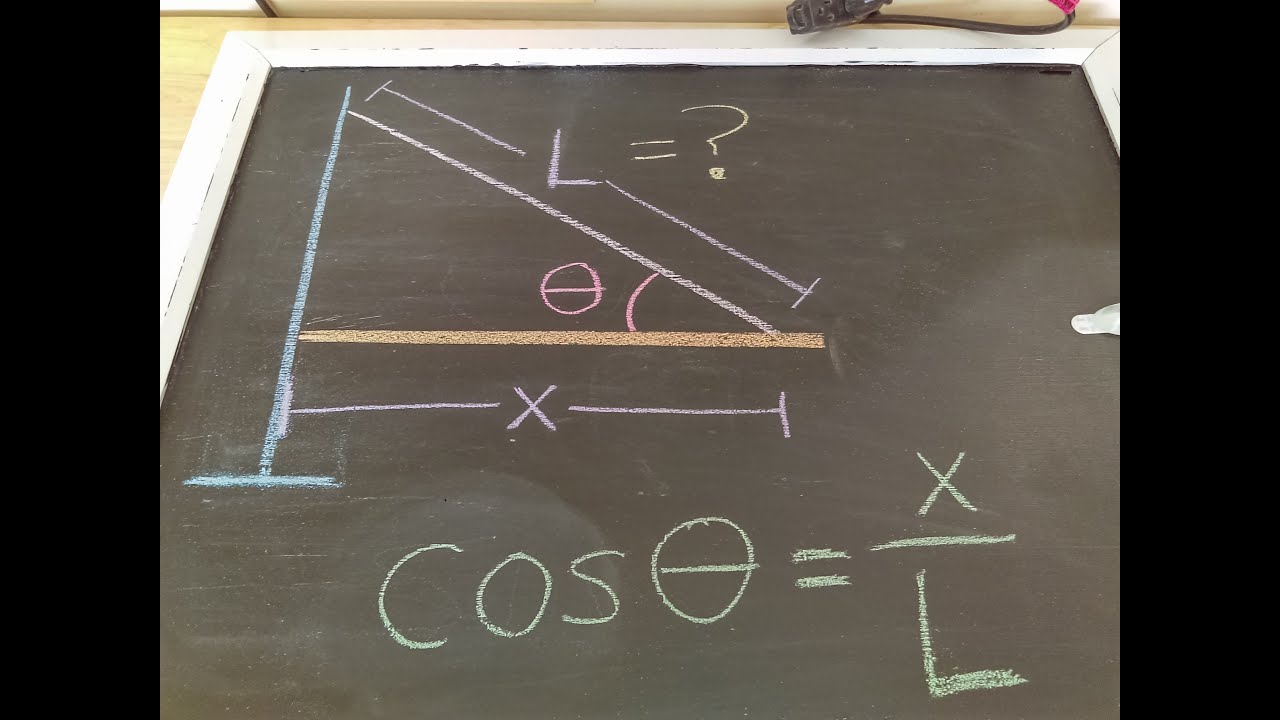 L = ?
θ
X
cosθ = X/L